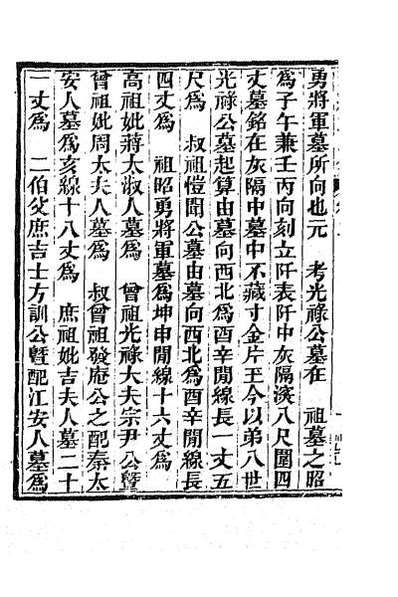 勇將軍墓所向也元　考光祿公墓在　祖墓之昭
為子午兼壬丙向刻立阡表阡中灰隔演八尺圍四
丈墓銘在灰隔中墓中不藏寸金片王今以弟八世
光祿公墓起算由墓向西北為酉辛閒線長一丈五
尺為　叔祖愷聞公墓由墓向西北為酉辛閒線長
四丈為　祖昭勇將軍墓為坤申閒線十六丈為
高祖妣蔣太淑人墓為　曾祖光祿大夫宗尹公暨
曾祖妣周太夫人墓為　叔曾祖發庵公之配秦太
安人墓為亥線十八丈為　庶祖妣吉夫人墓二十
一丈為　二伯父庶吉士方訓公暨配江安人墓為